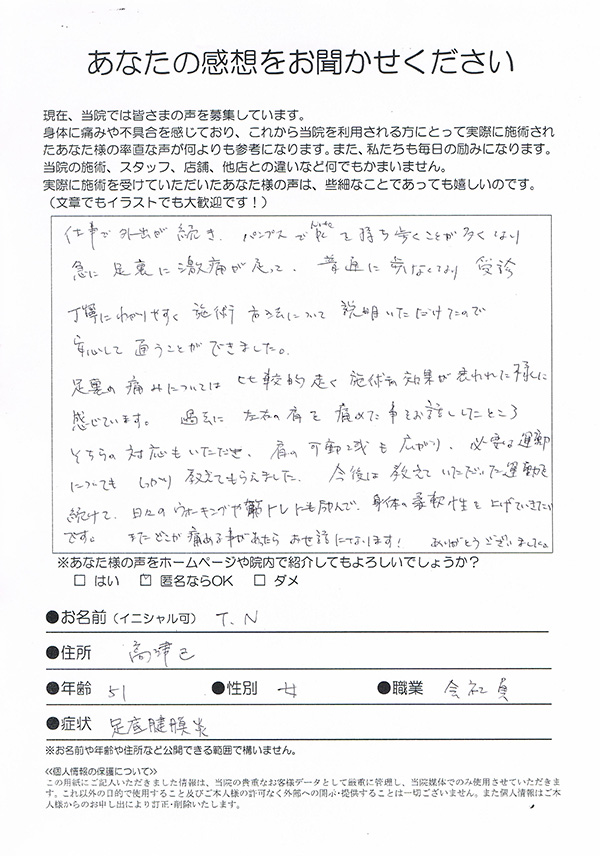 あなたの感想をお聞かせください
現在、当院では皆さまの声を募集しています。
身体に痛みや不具合を感じており、これから当院を利用される方にとって実際に施術され
たあなた様の率直な声が何よりも参考になります。また、私たちも毎日の励みになります。
当院の施術、スタッフ、店舗、他店との違いなど何でもかまいません。
実際に施術を受けていただいたあなた様の声は、些細なことであっても嬉しいのです。
（文章でもイラストでも大歓迎です！）
仕事で外出が続き、パンプスで を持ち歩くことが多くなり
急に足裏に激痛が走って、普通に歩けなくなり 受診
丁寧にわかりやすく施術方法について説明いただけたので
安心して通うことができました。
足裏の痛みについては比較的早く施術の効果が表われた様に
感じています。 過去に左右の肩を痛めた事をお話ししたところ
そちらの対応もいただき、肩の可動域も広がり、必要な運動
についてもしっかり教えてもらえました。今後は教えていただいた運動を
続けて、日々のウォーキングや筋トレにも励んで、身体の柔軟性を上げていきたい
です。 またどこか痛める事があったらお世話になります！ ありがとうございました。
※あなた様の声をホームページや院内で紹介してもよろしいでしょうか？
□ はい ☑ 匿名ならOK □ ダメ
●お名前（イニシャル可） T.N
●住所 高津区
●年齢 51 ●性別 女 ●職業 会社員
●症状 足底腱膜炎
※お名前や年齢や住所など公開できる範囲で構いません。
≪個人情報の保護について≫
この用紙にご記入いただきました情報は、当院の貴重なお客様データとして厳重に管理し、当院媒体でのみ使用させていただきま
す。これ以外の目的で使用すること及びご本人様の許可なく外部への開示・提供することは一切ございません。また個人情報はご本
人様からのお申し出により訂正・削除いたします。